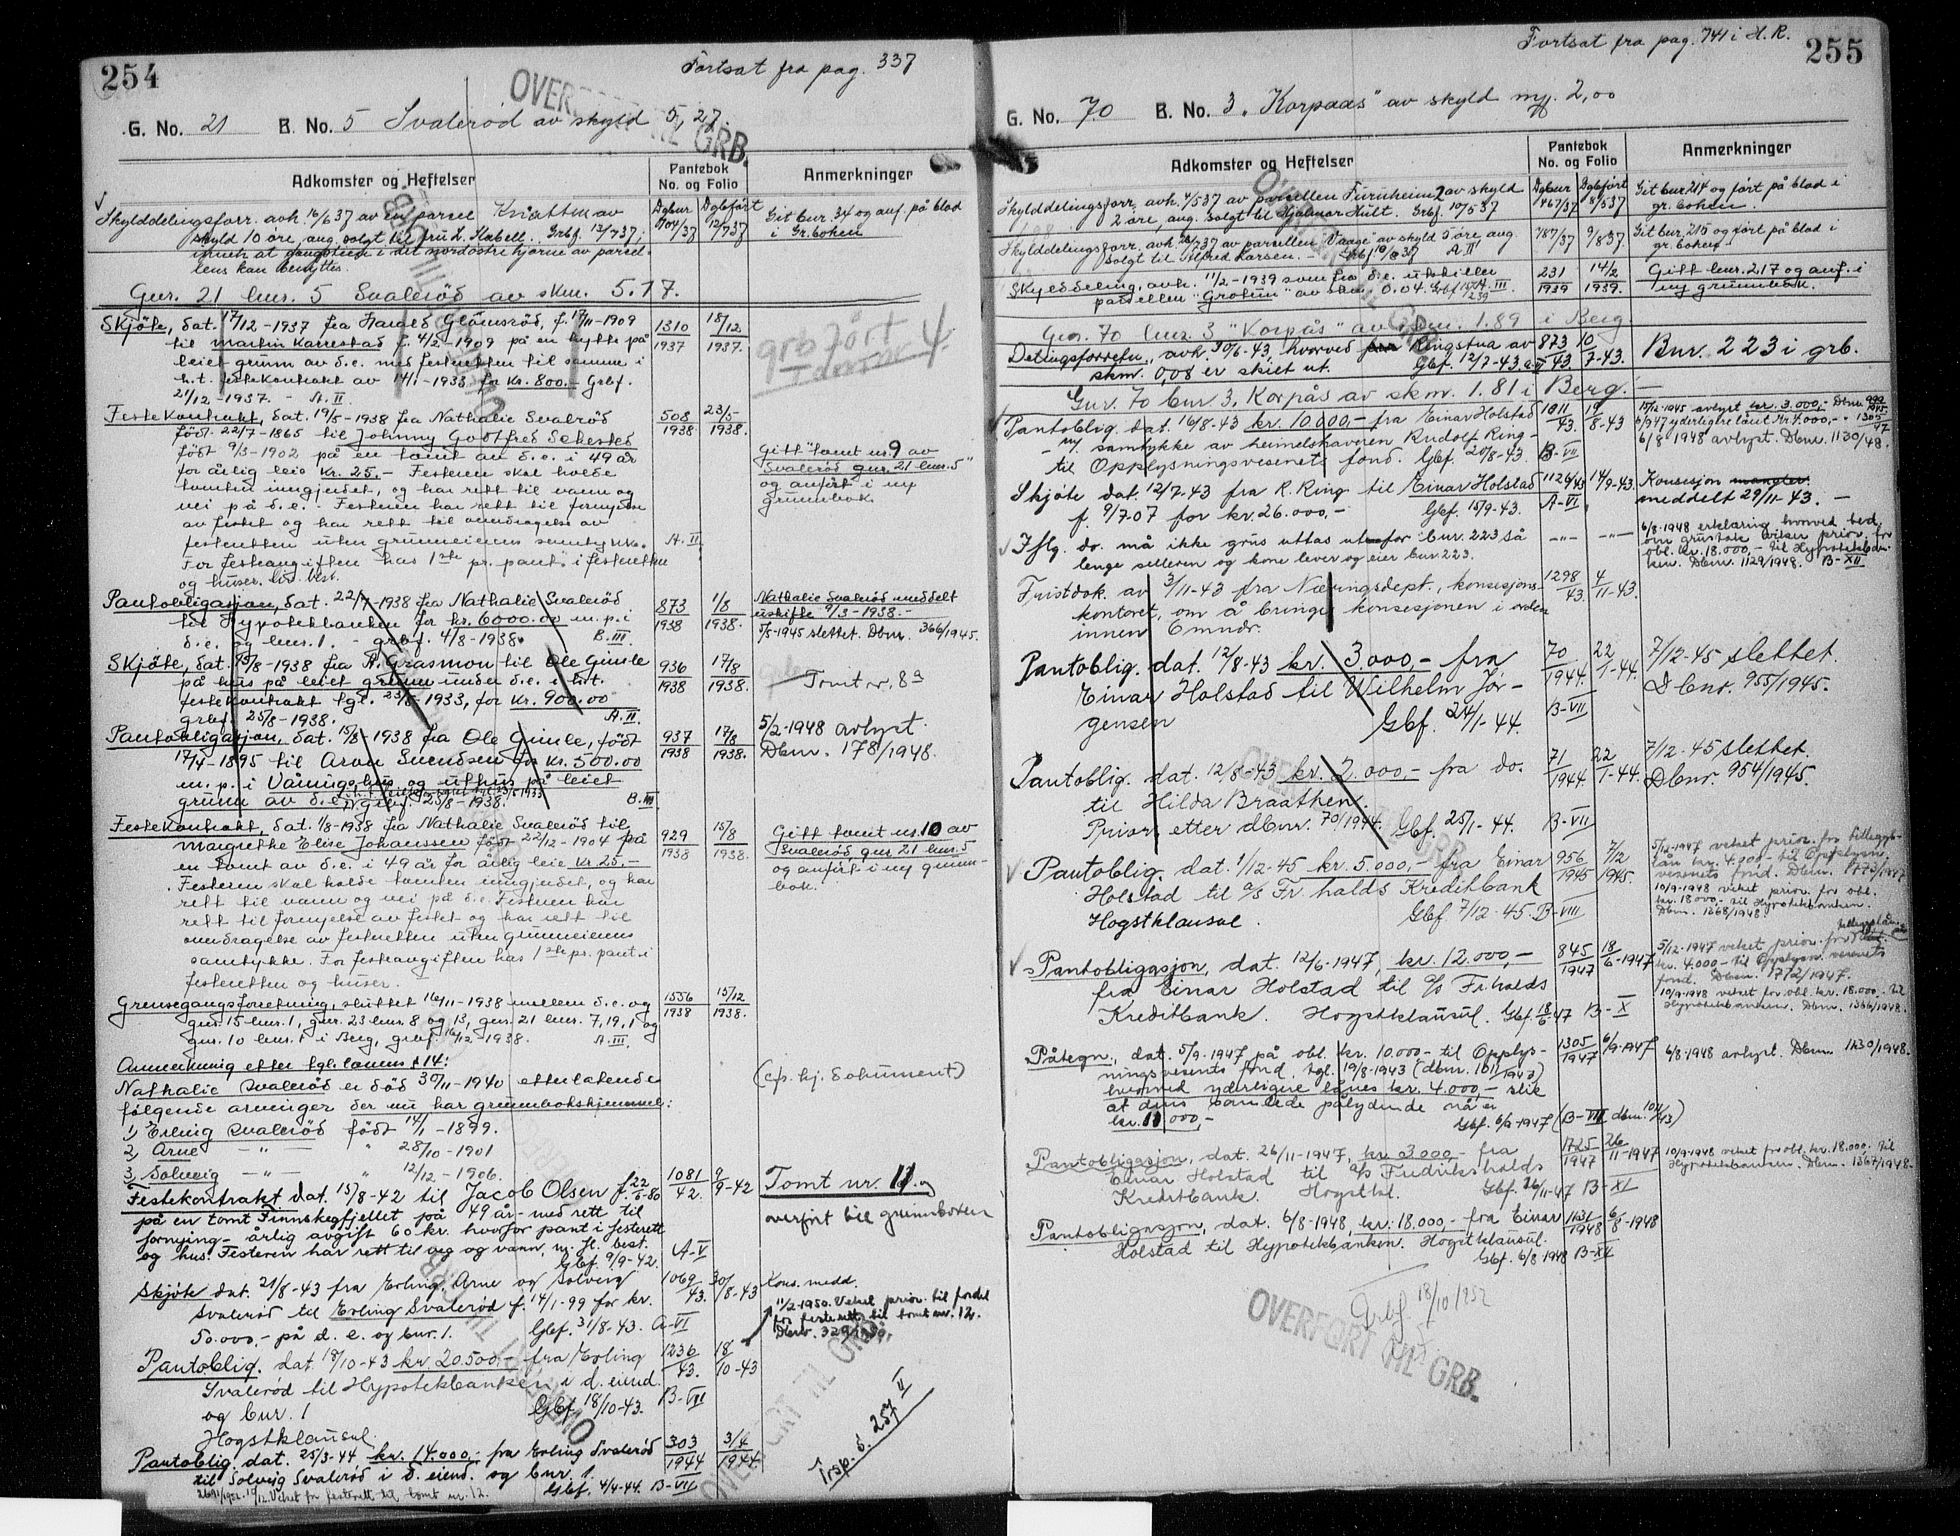 254
Fortsat fra pag. 337
OVERFØRT TIL GRB.
G. No. 21 B. No. 5 Svalerød av skyld 5,27.
Adkomster og Heftelser
Pantebok
No. og Folio
Anmerkninger
Skylddelingsforr. avh. 16/6 37 av en parcel Knatten av
skyld 10 øre, ang. solgt til fru L. Kabell. Grbf. 12/7 37,
lens kan benyttes.
Dgbnr 704/37
Dgbført 12/7 37
Git bnr. 34 og anf. på blad
i Gr.boken
Gnr. 21 bnr. 5 Svalerød av skm. 5.17.
Skjöte, dat. 17/12-1937 fra Harald Glåmsrød, f. 17/11-1909
til Martin Karrestad f. 4/2-1909 på en hytte på
leiet grunn av d.e. med festeretten til samme i
h.t. festekontrakt av 14/1-1933 for kr. 800.- Grbf.
21/12-1937. - A.II
1310/1937
18/12 1937.
grb ført
Festekontrakt, dat. 19/5-1938 fra Nathalie Svalerød
født 22/7-1865 til Johnny Godtfred Sekested
født 9/3-1902 på en tomt av d.e. i 49 år
for årlig leie kr. 25.- Festeren skal holde
tomten inngjerdet, og har rett til vann og
vei på d.e. - Festeren har rett til fornyelse
av festet og har rett til overdragelse av
festeretten uten grunneierens samtykke. A.II
For festeavgiften has 1ste pr. pant i festeretten
og huser. lig. best.
508/1938
23/5-1938.
Gitt tomt nr. 9 av
Svalerød gnr. 21 bnr. 5"
og anført i ny
grunnbok.
Pantobligasjon, dat. 22/7-1938 fra Nathalie Svalerød
til Hypotekbanken for kr. 6000.00 m.p. i
d.e. og bnr. 1. - grbf. 4/8-1938. B.III
873/1938
1/8 1938.
Nathalie Svalerød meddelt
uskifte 9/3-1938.-
7/8-1945 slettet. Dbnr. 366/1945.
Skjöte, dat. 15/8-1938 fra A. Grasmon til Ole Gimle
på hus på leiet grunn under d.e. i h.t.
festekontrakt tgl. 23/8-1933, for kr. 900.00
grbf. 25/8-1938. A.II.
936/1938
17/8 1938.
Tomt nr. 8a
Pantobligasjon, dat. 15/8-1938 fra Ole Gimle, født
17/4-1895 til Arne Svendsen for kr. 500.00
m.p. i Våningshus og uthus på leiet
grunn av d.e. grbf. 25/8-1938. B.III
937/1938
17/8 1938.
5/2-1948 avlyst.
Dbnr. 178/1948.
Festekontrakt, dat. 1/8-1938 fra Nathalie Svalerød til
Margrethe Elise Johanssen født 22/12-1904 på
en tomt av d.e. i 49 år for årlig leie kr. 25.-
Festeren skal holde tomten inngjerdet, og har
rett til vann og vei på d.e. Festeren har
rett til fornyelse av festet og har rett til
overdragelse av festeretten uten grunneierens
samtykke. For festeavgiften has 1ste pr. pant i
festeretten og huser.
929/1938
15/8 1938.
Gitt tomt nr. 10 av
Svalerød, gnr. 21 bnr. 5
og anført i ny grunn-
bok.
Grensegangsforretning, sluttet 16/11-1938 mellem d.e. og
gnr. 15 bnr. 1, gnr. 23 bnr. 8 og 13, gnr. 21 bnr. 7, 19, 1 og
gnr. 10 bnr. 1 i Berg, grbf. 16/12-1938. A.III.
1556/1938
15/12 1938.
Anmerkning etter tgl. lovens § 14:
Nathalie Svalerød er død 30/11-1940 etterlatende
følgende arvinger der nu har grunnbokshjemmel:
(cfr. hj. dokument)
1, Erling Svalerød født 14/1-1899.
2, Arne -"- " 28/10-1901
3, Solveig -"- " 12/12-1906.
Festekontrakt dat. 15/8-42 til Jacob Olsen f. 22/5-80
på en tomt Finnskegfjellet på 49 år - med rett til
fornying - årlig avgift 60 kr. hvorfor pant i festerett
og hus. Festeren har rett til veg og vann, m. fl. best.
Gbf. 9/9-42. A-V
1081/42.
9/9-42
Tomt nr. 11. og
overført til grunnboken
Skjöte dat. 21/8-43 fra Erling, Arne og Solveig
Svalerød til Erling Svalerød f. 14/1-99 for kr.
50.000,- på d. e. og bnr. 1. Gbf. 31/8-43. A-VI
1069/43.
30/8-43
Kons. medd.
11/2-1950. Veket prior. til fordel
for festerett til tomt nr. 12.
Dbnr. 329/1950.
Pantoblig. dat. 18/10-43 kr. 20.500,- fra Erling
Svalerød til Hypotekbanken i d. eiend.
og bnr. 1 Gbf. 18/10-43. B-VII
Hogstklausul.
1236/43.
18/10-43
Pantoblig. dat. 25/3-44 kr. 14.000,- fra Erling Svalerød
til Solveig Svalerød i d. eiend. og bnr. 1.
Gbf. 4/4-44. B-VII
303/1944
3/4 1944.
Veket for festerett til tomt nr. 12.
Trsp. S. 257 II
OVERFØRT TIL GRB.
255
Fortsat fra pag. 741 i H.R.
G. No. 70 B. No. 3 „Korpaas" av skyld my. 2,00
Adkomster og Heftelser
Pantebok
No. og Folio
Anmerkninger
Skylddelingsforr. avh. 4/5 37 av parsellen Furuheim 2 av skyld
2 øre, ang. solgt til Hjalmar Hult. Grbf. 10/5 37
Dgbnr 467/37
Dgbført 8/5 37
Git bnr 214 og ført på blad i
gr. boken.
Skylddelingsforr. avh. 26/7 37 av parsellen „Vaage" av skyld 5 øre ang.
solgt til Alfred Larsen. - Grbf. 10/8 37 A II
787/37
9/8 37
Git bnr. 215 og ført på blad i
gr. boken
Skylddeling, avh. 11/2-1939 som fra d.e. utskiller
parsellen "Grotun" av skm 0.04. Grbf
231/1939
14/2 1939.
Gitt bnr. 217 og anf. i
ny grunnbok.
Gnr. 70 bnr. 3 "Korpås" av skm. 1.89 i Berg.
Delingsforretn., avh. 30/6-43, hvorved Ringstua av
skm. 0,08 er skilt ut. Gbf. 12/7-43
873/43.
10/7-43.
Bnr. 223 i grb.
Gnr. 70 bnr 3. Korpås av skm. 1.81 i Berg.
Pantoblig. dat. 16/8-43 kr. 10.000,- fra Einar Holstad
m/ samtykke av heimelshaveren Rudolf Ring -
til Opplysningsvesenets fond. Gbf. 20/8-43. B-VII
1011/43.
19/8-43
15/12-1945 avlyst kr. 3.000,- Dbnr. 999/1945.
6/9 47 ytterligere lånt kr. 4.000,- - " 1305/47
6/8 1948 avlyst. Dbnr. 1130/48.
Skjöte dat. 12/7-43 fra R. Ring til Einar Holstad
f. 9/7-07 for kr. 26.000,- Gbf. 15/9-43. A-VI
1126/43
14/9-43.
Konsesjon mangler.
meddelt 29/11-43. -
Iflg. do. må ikke grus uttas utenfor bnr. 223 så
lenge selleren og kone lever og eier bnr 223.
-"-
-"-
6/8-1948 erklæring hvorved best.
om grustak viker prior. for
obl. kr. 18.000,- til Hypotekban-
ken. Dbnr. 1129/1948. B-XII
Fristdok. av 3/11-43 fra Næringsdept., konsesjons-
kontoret, om å bringe konsesjonen i orden
innen 6 mndr.
1298/43
4/11-43.
Pantoblig. dat. 12/8-43 kr. 3.000,- fra
Einar Holstad til Wilhelm Jør-
gensen Gbf. 24/1-44. B-VII
70/1944
22/1-44.
7/12-45 slettet.
Dbnr. 955/1945.
Pantoblig. dat. 12/8-43 kr. 2.000,- fra do.
til Hilda Braathen.
Prior. etter dbnr. 70/1944. Gbf. 25/1-44. B-VII
71/1944
22/1-44.
7/12-45 slettet.
Dbnr. 954/1945.
Pantoblig. dat. 1/12-45 kr. 5.000,- fra Einar
Holstad til a/s Fr.halds Kreditbank
Hogstklausul. Gbf 7/12-45. B-VIII
956/1945
7/12 1945.
5/12-1947 veket prior. for tilleggs-
lån kr. 4.000,- til Opplysn.
vesenets fond. Dbnr. 1773/1947
10/9-1948 veket prior. for obl.
kr. 18.000,- til Hypotekbanken.
Dbnr. 1368/1948.
Pantobligasjon, dat. 12/6-1947, kr. 12.000,-
fra Einar Holstad til a/s Fr.halds
Kreditbank. Hogstklausul. Gbf. 18/6-47 B-X
845/1947
18/6-1947
5/12-1947 veket prior. for tilleggslån
kr. 4.000,- til Opplysn. vesenets
fond. Dbnr. 1772/1947.
10/9-1948 veket for obl. kr. 18.000,- til
Hypotekbanken. Dbnr. 1366/1948.
Påtegn., dat. 5/9-1947 på obl. kr. 10.000,- til Opplys-
ningsvesenets fond, tgl. 19/8-1943 (dbnr. 1011/1943)
hvorved ytterligere lånes kr. 4.000,- slik
at dens samlede pålydende nå er
kr. 11.000,- Gbf. 6/9-1947 (B-VII dbnr. 1011/43)
1305/1947
6/9-1947
6/8-1948 avlyst. Dbnr. 1130/1948.
Pantobligasjon, dat. 26/11-1947, kr. 3.000,- fra
Einar Holstad til a/s Fredrikshalds
Kreditbank. Hogstkl. Gbf. 26/11-47 B-XI
1725/1947
26/11-1947
10/9-1948 veket for obl. kr. 18.000,- til
Hypotekbanken. Dbnr. 1367/1948.
Pantobligasjon, dat. 6/8-1948, kr. 18.000,- fra Einar
Holstad til Hypotekbanken. Hogstklausul.
Gbf. 6/8 1948 B-XII
1131/1948
6/8-1948
Grbf 18/10 1952
OVERFØRT TIL GRB.